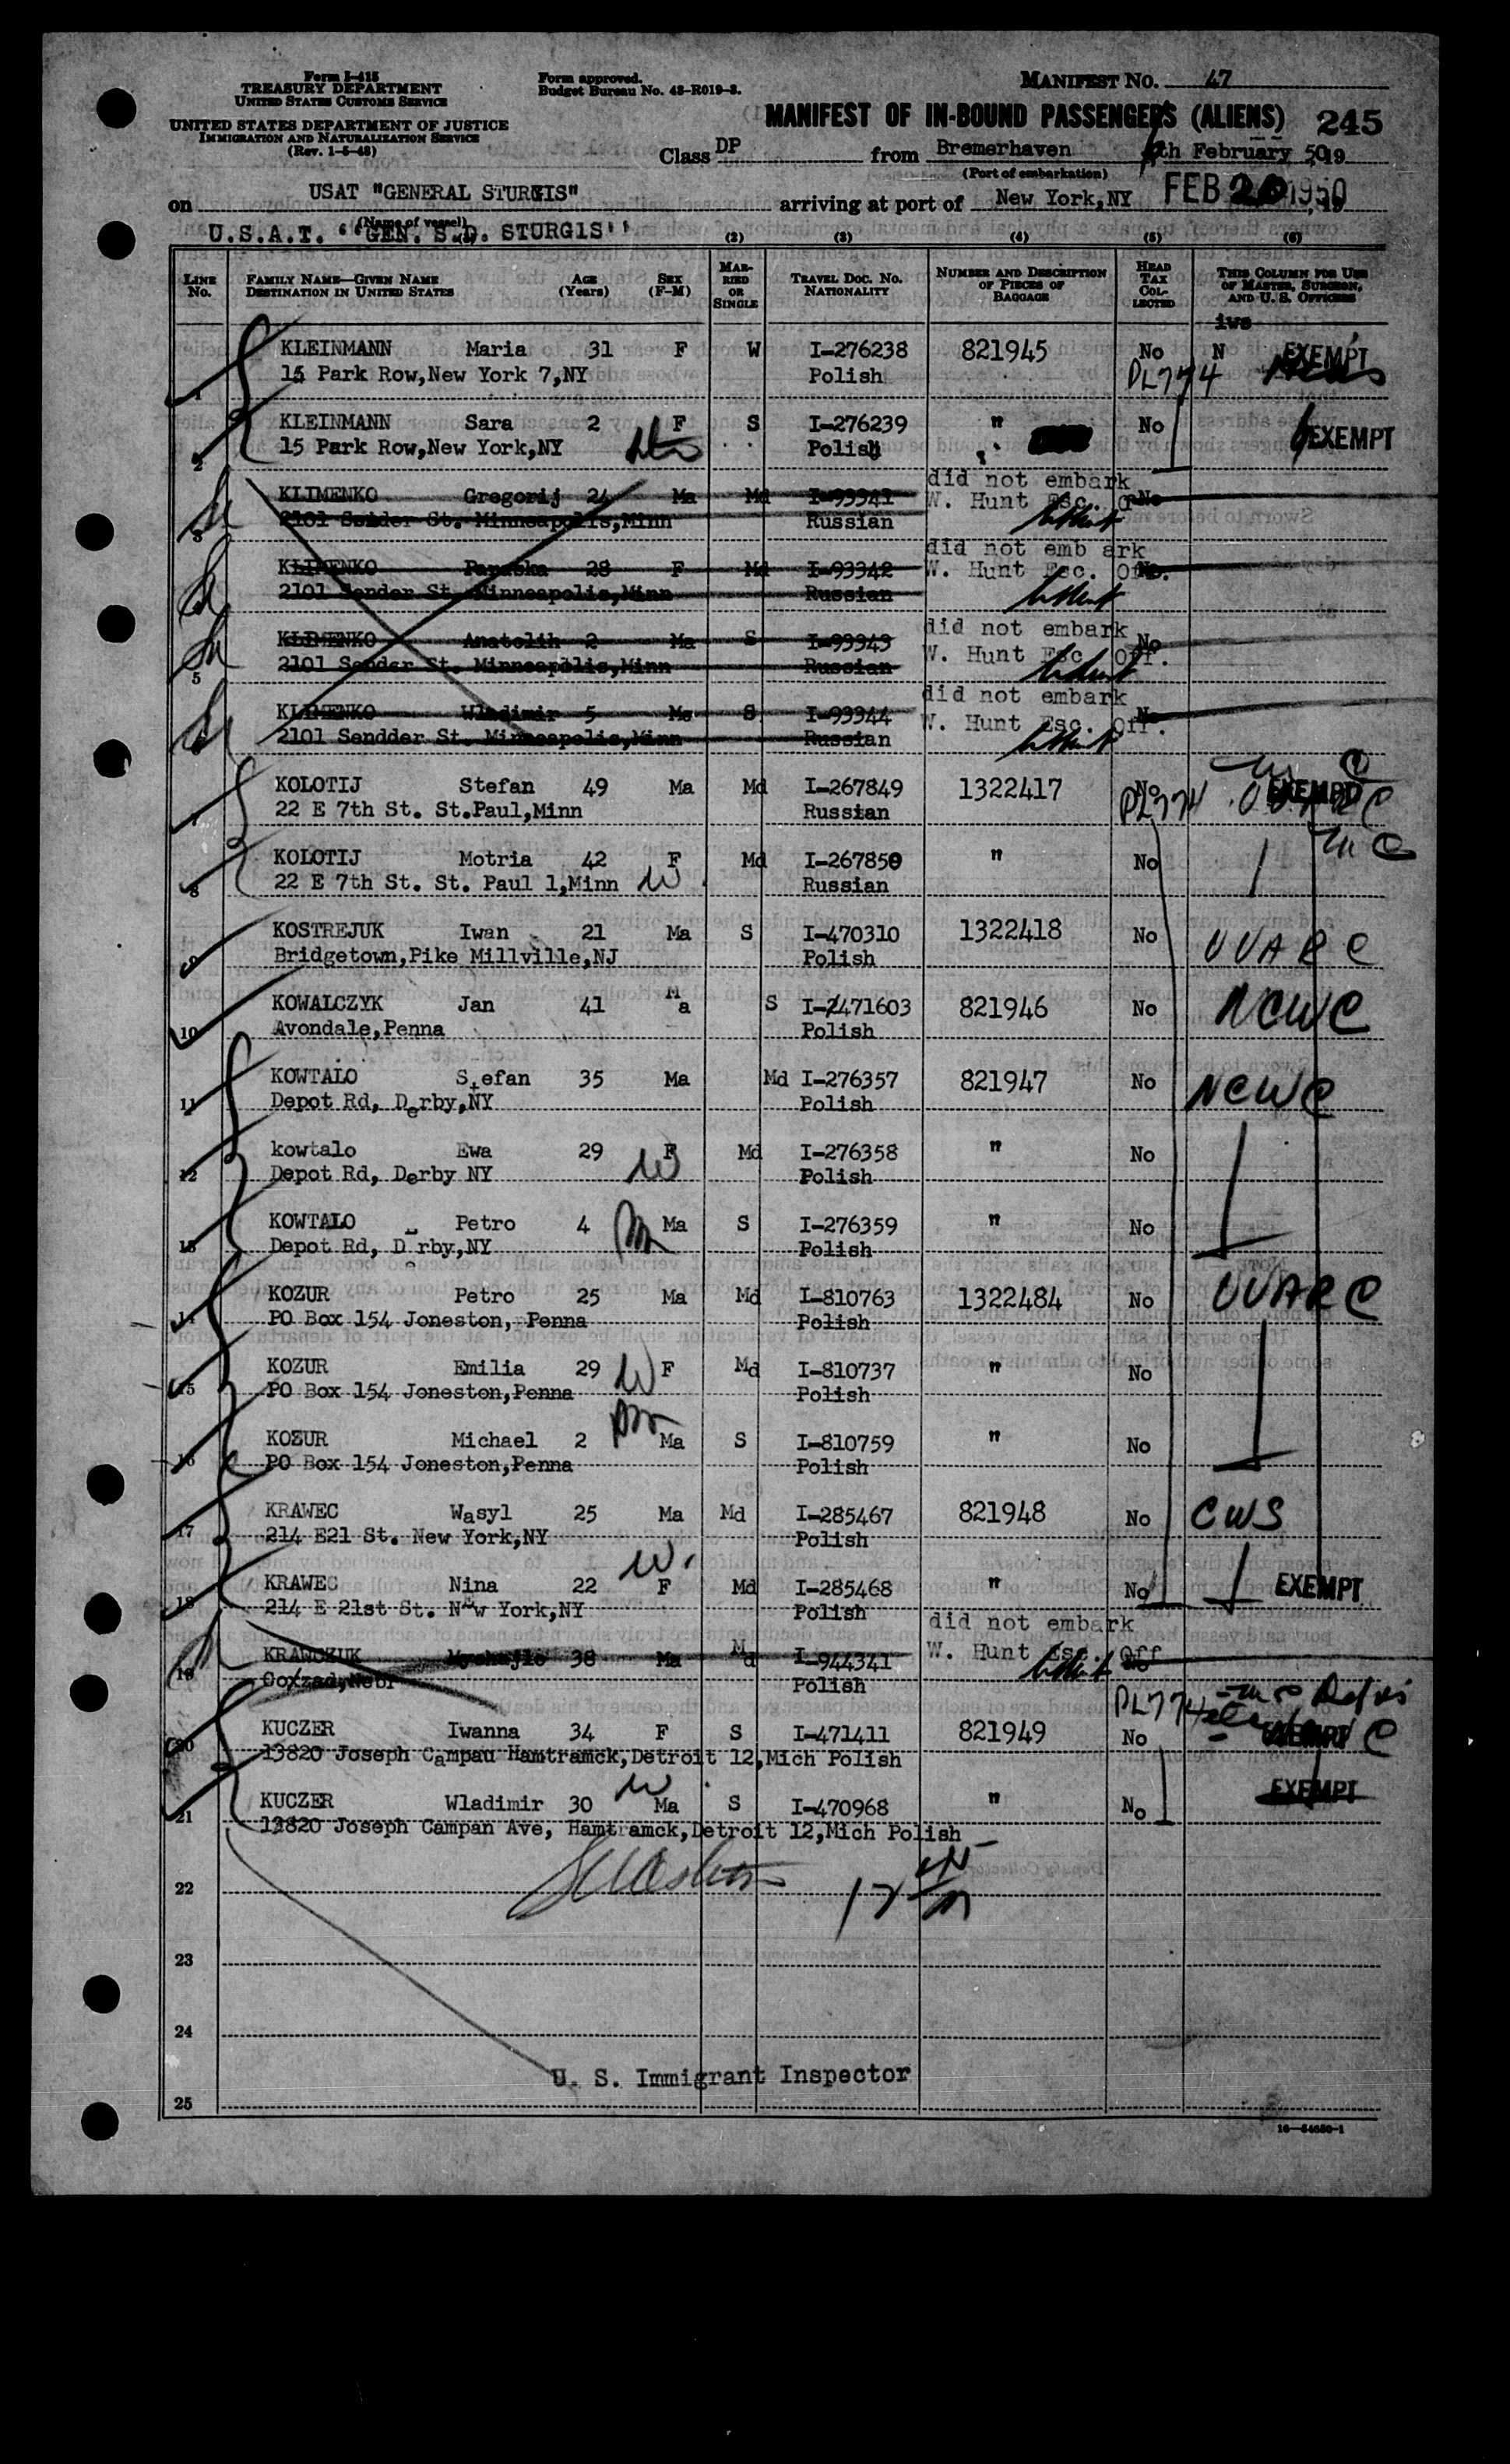 Form I-415
TREASURY DEPARTMENT
UNITED STATES CUSTOMS SERVICE
UNITED STATES DEPARTMENT OF JUSTICE
IMMIGRATION AND NATURALIZATION SERVICE
(Rev. 1-5-48)
Form approved.
Budget Bureau No. 43-R019-3.
MANIFEST NO. 47
MANIFEST OF IN-BOUND PASSENGERS (ALIENS) 245
Class DP from Bremerhaven th February 50 19
(Port of embarkation)
on USAT "GENERAL STURGIS" arriving at port of New York,NY FEB 20 1950
(Name of vessel)
U.S.A.T. "GEN. S.D. STURGIS"
(2) (3) (4) (5) (6)
LINE No. FAMILY NAME—GIVEN NAME DESTINATION IN UNITED STATES AGE (Years) SEX (F-M) MARRIED OR SINGLE TRAVEL DOC. NO. NATIONALITY NUMBER AND DESCRIPTION OF PIECES OF BAGGAGE HEAD TAX COLLECTED THIS COLUMN FOR USE OF MASTER, SURGEON, AND U. S. OFFICERS
iws
1 KLEINMANN Maria 31 F W I-276238 821945 No N EXEMPT
15 Park Row,New York 7,NY Polish PL774
2 KLEINMANN Sara 2 F S I-276239 " No EXEMPT
15 Park Row,New York,NY Polish
did not embark
3 KLIMENKO Gregorij 24 Ma Md I-93341 W. Hunt Esc. No
2101 Seider St. Minneapolis,Minn Russian
did not emb ark
KLIMENKO Paraska 28 F Md I-93342 W. Hunt Esc. Off.
2101 Sender St. Minneapolis,Minn Russian
did not embark
5 KLIMENKO Anatolih 2 Ma S I-93343 No
2101 Sender St. Minneapolis,Minn Russian W. Hunt Esc. Off.
did not embark
KLIMENKO Wladimir 5 Ma S I-93344 No
2101 Sendder St. Minneapolis,Minn Russian W. Hunt Esc. Off.
7 KOLOTIJ Stefan 49 Ma Md I-267849 1322417 No EXEMPT
22 E 7th St. St.Paul,Minn Russian PL774
8 KOLOTIJ Motria 42 F Md I-267850 " No
22 E 7th St. St. Paul 1,Minn W. Russian
9 KOSTREJUK Iwan 21 Ma S I-470310 1322418 No UUARC
Bridgetown,Pike Millville,NJ Polish
10 KOWALCZYK Jan 41 Ma S I-471603 821946 No NCWC
Avondale,Penna Polish
11 KOWTALO Stefan 35 Ma Md I-276357 821947 No NCWC
Depot Rd, Derby,NY Polish
12 kowtalo Ewa 29 W F Md I-276358 " No
Depot Rd, Derby NY Polish
13 KOWTALO Petro 4 Ma S I-276359 " No
Depot Rd, Derby,NY Polish
14 KOZUR Petro 25 Ma Md I-810763 1322484 No UUARC
PO Box 154 Joneston, Penna Polish
15 KOZUR Emilia 29 W F Md I-810737 " No
PO Box 154 Joneston,Penna Polish
16 KOZUR Michael 2 Ma S I-810759 " No
PO Box 154 Joneston,Penna Polish
17 KRAWEC Wasyl 25 Ma Md I-285467 821948 No CWS
214 E21 St. New York,NY Polish
18 KRAWEC Nina 22 W. F Md I-285468 " No EXEMPT
214 E 21st St. New York,NY Polish
did not embark
19 KRAWCZUK Mychajlo 38 Ma Md I-944341 W. Hunt Esc. Off
Cozzad,Nebr Polish
PL774
20 KUCZER Iwanna 34 F S I-471411 821949 No EXEMPT
13820 Joseph Campau Hamtramck,Detroit 12,Mich Polish
21 KUCZER Wladimir 30 Ma S I-470968 " No EXEMPT
13820 Joseph Campan Ave, Hamtramck,Detroit 12,Mich Polish
22
23
24
U. S. Immigrant Inspector
25